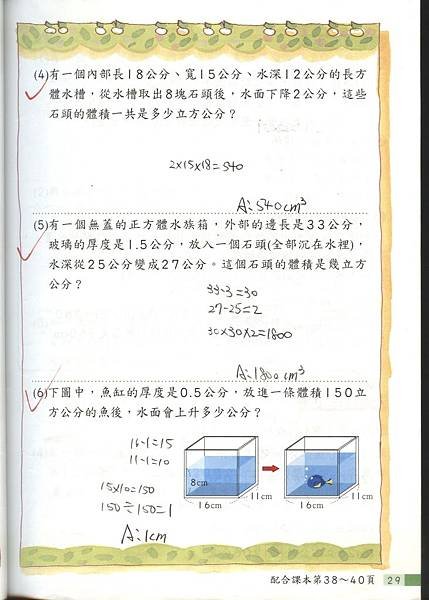 (4)有一個內部長18公分、寬15公分、水深12公分的長方
體水槽，從水槽取出8塊石頭後，水面下降2公分，這些
石頭的體積一共是多少立方公分？
2×15×18=540
A:540cm³
(5)有一個無蓋的正方體水族箱，外部的邊長是33公分，
玻璃的厚度是1.5公分，放入一個石頭(全部沉在水裡)，
水深從25公分變成27公分。這個石頭的體積是幾立方
公分？
33-3=30
27-25=2
30×30×2=1800
A:1800cm³
(6)下圖中，魚缸的厚度是0.5公分，放進一條體積150立
方公分的魚後，水面會上升多少公分？
16-1=15
11-1=10
15×10=150
150÷150=1
A:1cm
8cm
16cm
11cm
16cm
11cm
配合課本第38～40頁 29